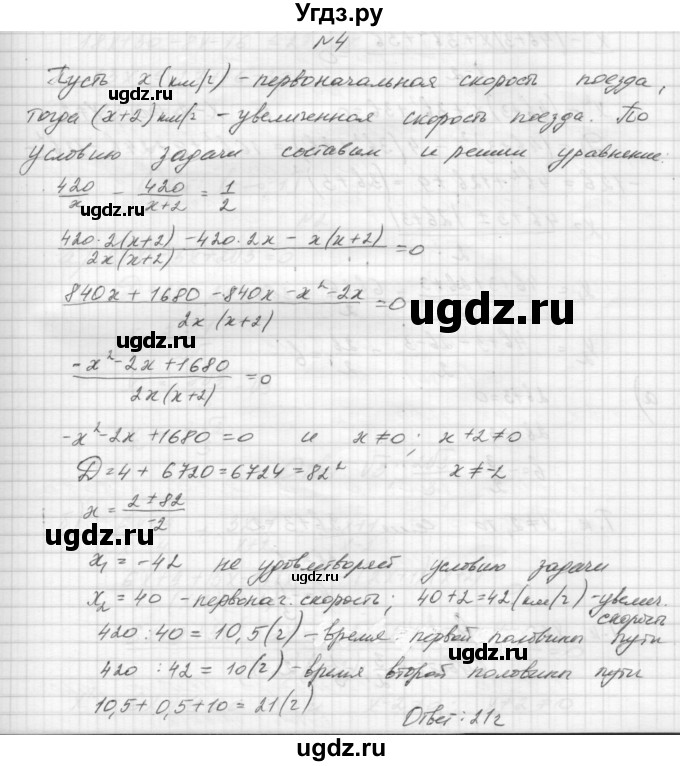 Угдз.ру
№4
Пусть x (км/г) - первоначальная скорость поезда,
тогда (x+2) км/г - увеличенная скорость поезда. По
условию задачи составим и решим уравнение:
420/x - 420/(x+2) = 1/2
(420·2(x+2) - 420·2x - x(x+2))/(2x(x+2)) = 0
(840x + 1680 - 840x - x² - 2x)/(2x(x+2)) = 0
(-x² - 2x + 1680)/(2x(x+2)) = 0
-x² - 2x + 1680 = 0 и x ≠ 0; x + 2 ≠ 0
D = 4 + 6720 = 6724 = 82² x ≠ -2
x = (2 ± 82)/(-2)
x₁ = -42 не удовлетворяет условию задачи
x₂ = 40 - первонач. скорость; 40+2=42 (км/г) - увелич. скорость
420 : 40 = 10,5 (г) - время первой половины пути
420 : 42 = 10 (г) - время второй половины пути
10,5 + 0,5 + 10 = 21 (г)
Ответ: 21г
ugdz.ru
ugdz.ru
ugdz.ru
ugdz.ru
ugdz.ru
ugdz.ru
ugdz.ru
ugdz.ru
ugdz.ru